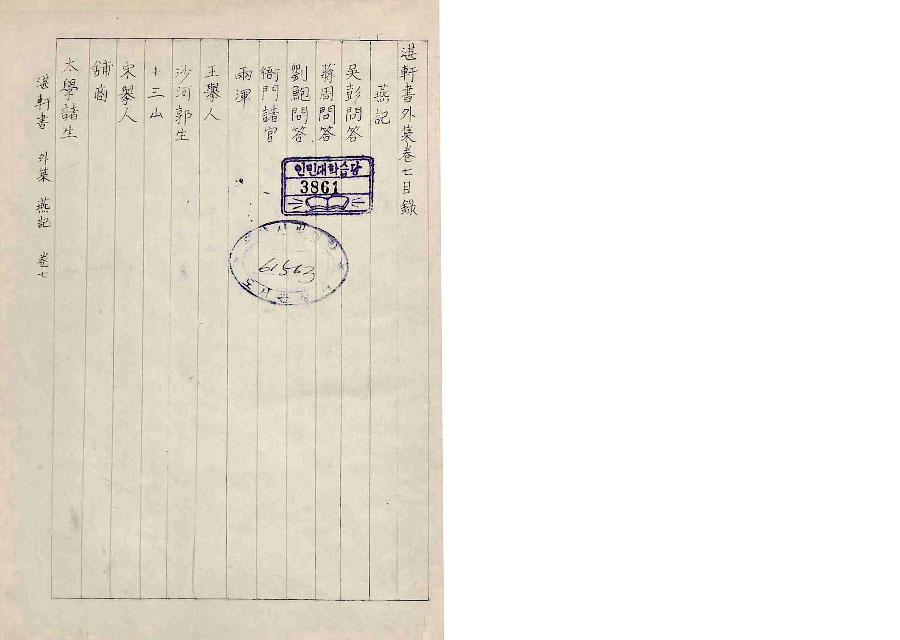 湛軒書外集卷七目錄
燕記
吳彭問答
蔣周問答
劉鮑問答
衙門諸官
兩渾
王擧人
沙河郭生
十三山
宋擧人
鋪商
太學諸生
湛軒書 外集 燕記 卷七
인민대학습당
3861
61563